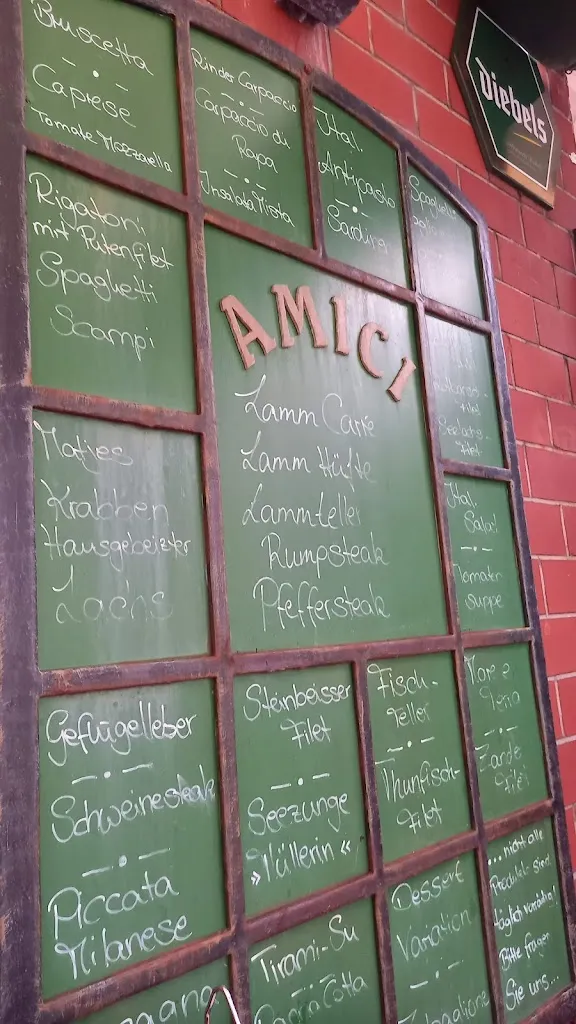 Bruscetta
Caprese
Tomate Mozzarella
Rinder Carpaccio
Carpaccio di
Rapa
Insalata Mista
Ital.
Antipasto
Sardina
Spaghetti
diebels
Rigatoni
mit Putenfilet
Spaghetti
Scampi
AMICI
Lamm Carre
Lamm Hüfte
Lammteller
Rumpsteak
Pfeffersteak
Filet
Matjes
Krabben
Hausgebeizter
Lachs
Ital.
Salat
Tomaten
suppe
Geflügelleber
Schweinesteak
Piccata
Milanese
Steinbeisser
Filet
Seezunge
»Müllerin«
Fisch-
Teller
Thunfisch-
Filet
Mare e
Terra
Zander
Filet
Tirami-Su
Panna Cotta
Dessert
Variation
Zabaglione
...nicht alle
Produkte sind
täglich vorrätig!
Bitte fragen
Sie uns...